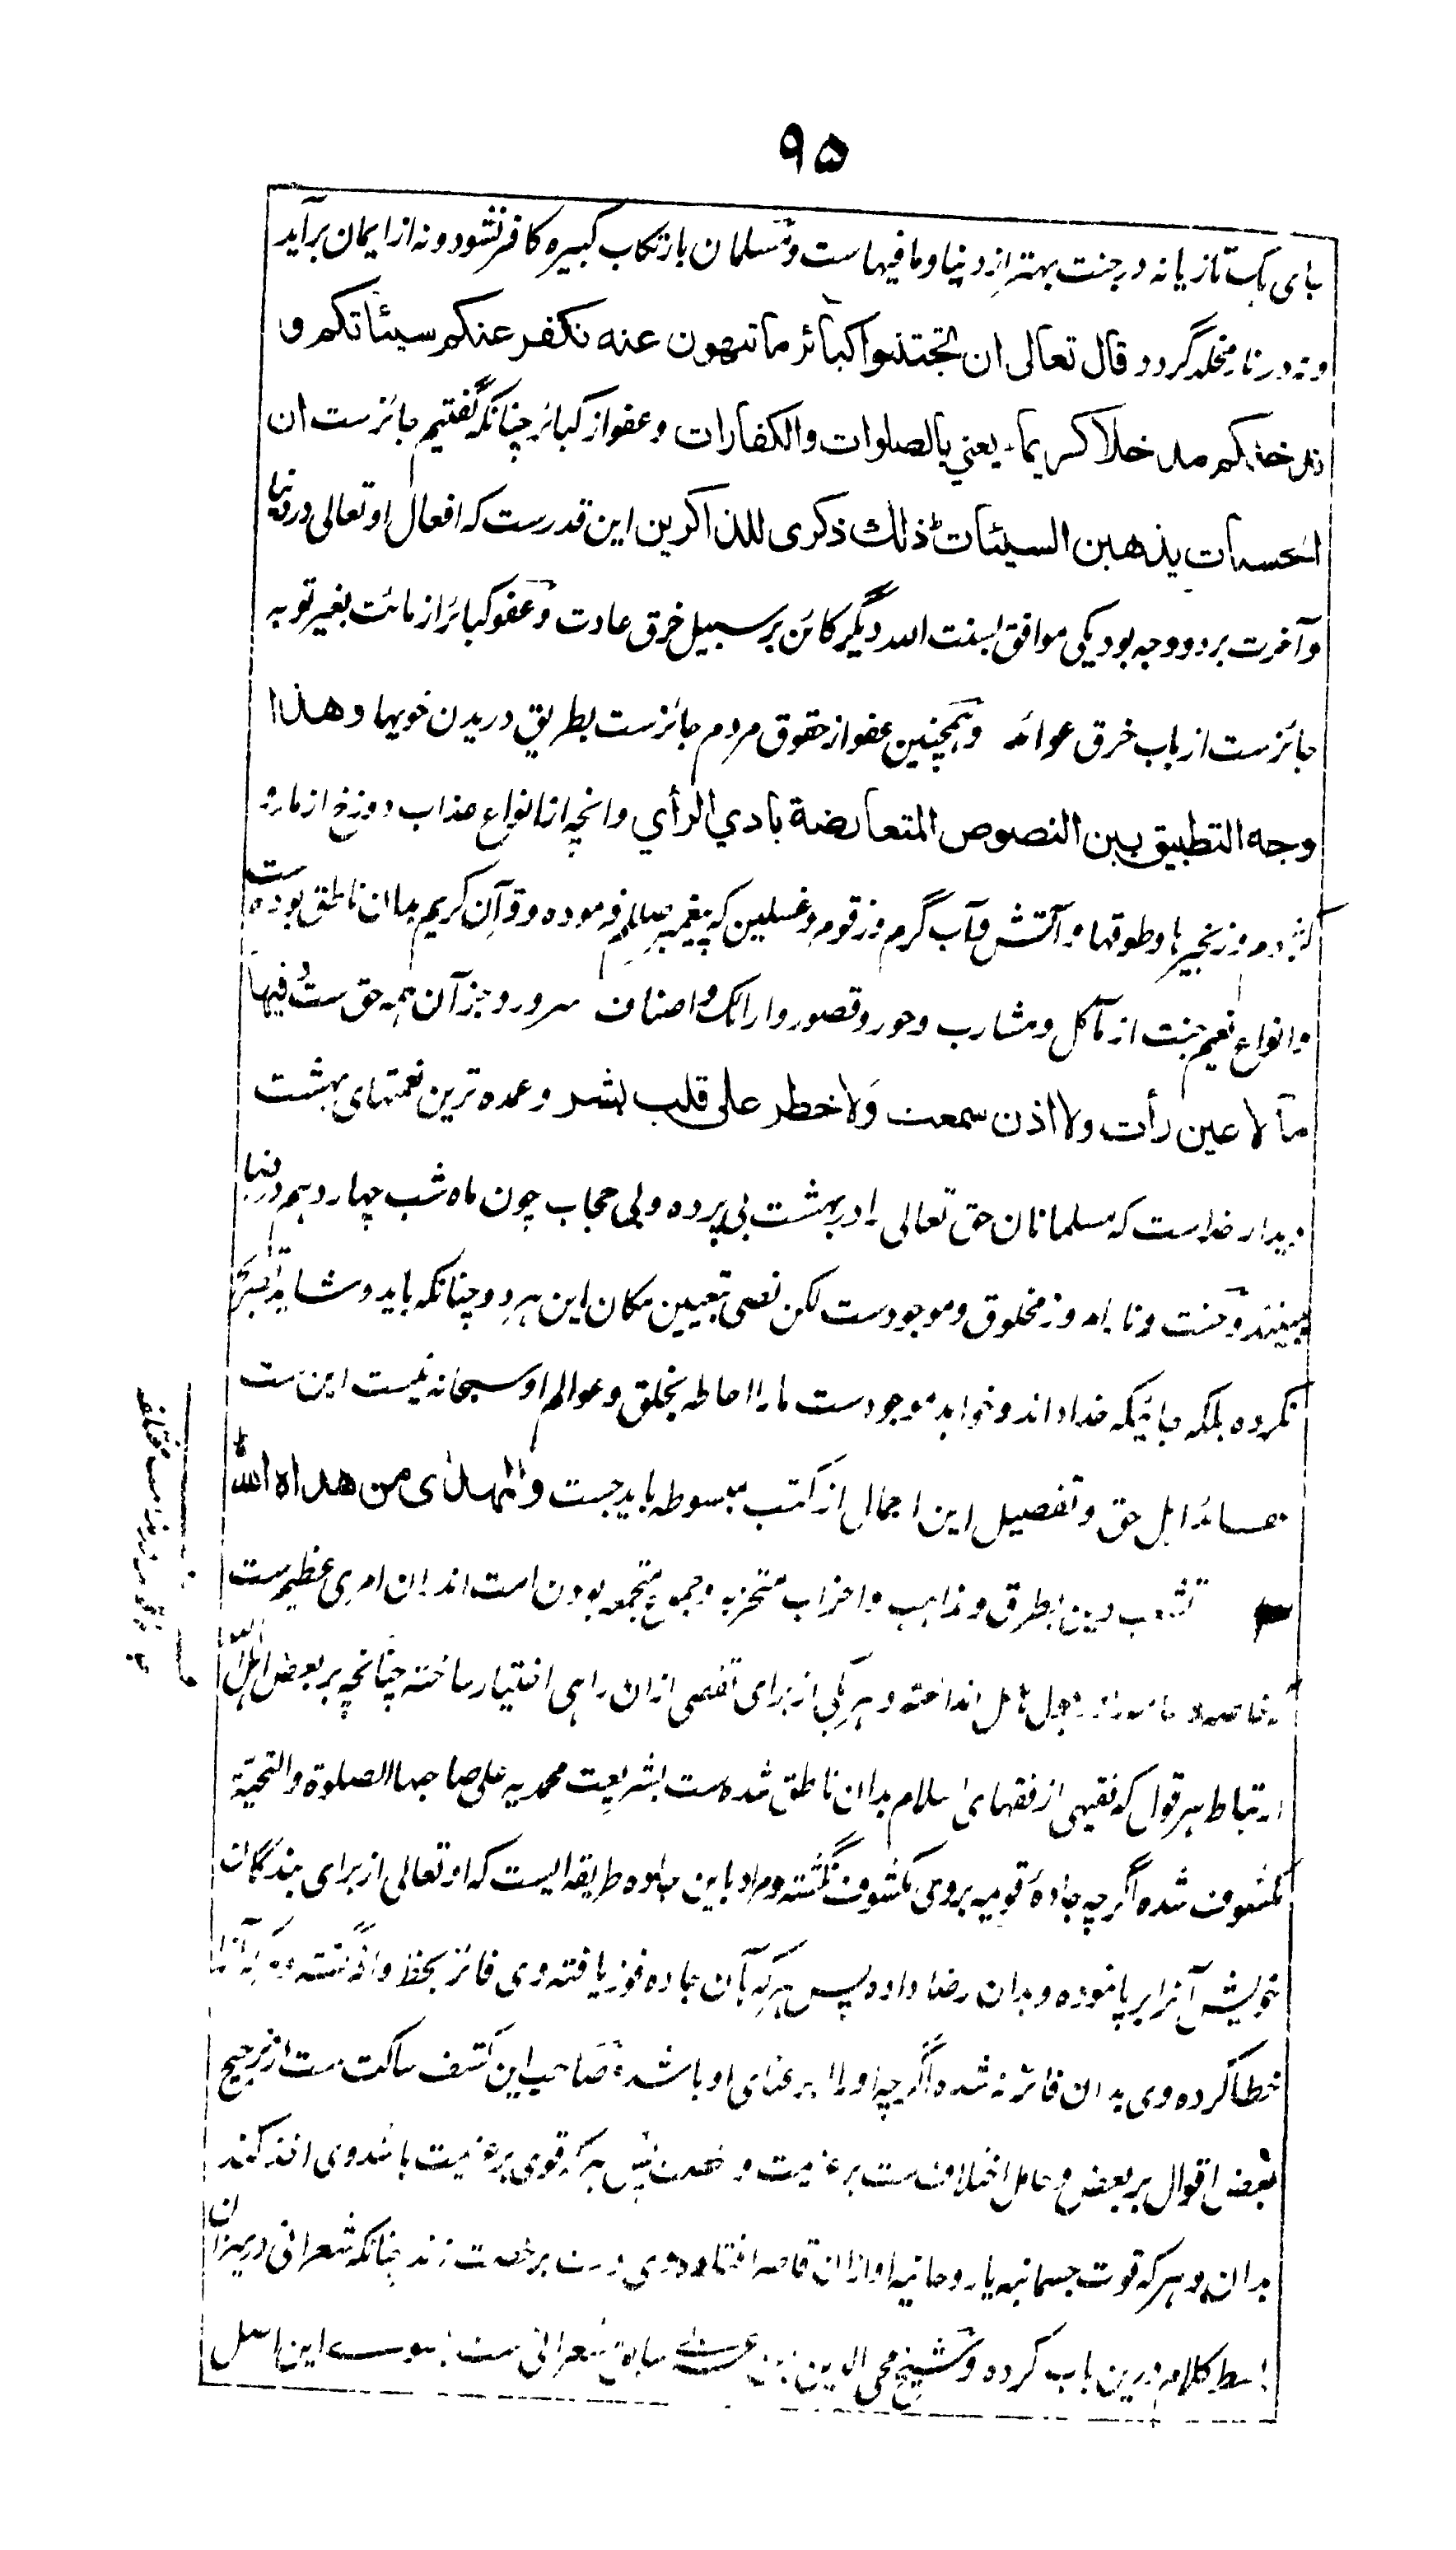 ۹۵
جای یک تازیانه در جنت بهتر از دنیا و ما فیها ست و مسلمان بارتکاب کبیره کافر نشود و نه از ایمان برآید
و نه در نار مخلد گردد قال تعالی ان تجتنبوا کبائر ما تنهون عنه نکفر عنکم سیئاتکم و
ندخلکم مدخلا کریما۔ یعنی بالصلوات والکفارات و عفو از کبائر چنانکه گفتیم جائز ست ان
الحسنات یذهبن السیئات ذلك ذکری للذاکرین این قدر ست که افعال او تعالی در دنیا
و آخرت بر دو وجه بود یکی موافق بسنت الله دیگر کائن بر سبیل خرق عادت و عفو کبائر از مائت بغیر توبه
جائز ست از باب خرق عوائد و همچنین عفو از حقوق مردم جائز ست بطریق دریدن خویها و هذا
وجه التطبیق بین النصوص المتعارضة بادي الرأي و انچه از انواع عذاب دوزخ از مار و
کژدم و زنجیرها و طوقها و آتش و آب گرم و زقوم و غسلین که پیغمبر صلعم فرموده و قرآن کریم بدان ناطق بوده ست
و انواع نعیم جنت از مآکل و مشارب و حور و قصور و ارائک و اصناف سرور و جز آن همه حق ست فیها
ما لا عین رأت ولا اذن سمعت ولا خطر علی قلب بشر و عمده ترین نعمتهای بهشت
دیدار خداست که مسلمانان حق تعالی را در بهشت بی پرده و بی حجاب چون ماه شب چهاردهم در دنیا
ببینند و جنت و نار امروز مخلوق و موجود ست لکن نصی تعیین مکان این هر دو چنانکه باید و شاید تصریح
نکرده بلکه جائیکه خدا داند و خواهد موجود ست ما را احاطه بخلق و عوالم او سبحانه نیست این ست
عقائد اهل حق و تفصیل این اجمال از کتب مبسوطه باید جست و المهدی من هداه الله
تشعب دین بطرق و مذاهب و احزاب متحزبه و جموع متجمعه بودن امت اندران امری عظیم ست
که خاصه و عامه را در وجل انداخته و هر یکی از برای تفصی ازان راهی اختیار ساخته چنانچه بر بعض اهل الله
ارتباط هر قول که فقیهی از فقهای اسلام بدان ناطق شده ست بشریعت محمدیه علی صاحبها الصلوة والتحیة
مکشوف شده اگرچه جادهٔ قویمه بروی مکشوف نگشته و مراد باین جاده طریقه ایست که او تعالی از برای بندگان
خویش آنرا برپا نموده و بدان رضا داده پس هر که بآن جاده فوز یافته وی فائز بحظ وافر گشته و هر که آنرا
خطا کرده وی بدان فائز نه شده اگرچه او را بر عنای او باشد و صاحب این کشف ساکت ست از ترجیح
بعض اقوال بر بعض و حامل اختلاف ست بر عزیمت و رخصت پس هر که قوی بر عزیمت باشد وی اخذ کند
بدان و هر که قوت جسمانیه یا روحانیه او ازان قاصر افتاده وی دست بر رخصت زند چنانکه شعرانی در میزان
بسط کلام درین باب کرده و شیخ محی الدین بن عربی سابق شعرانی ست بسوی این اصل